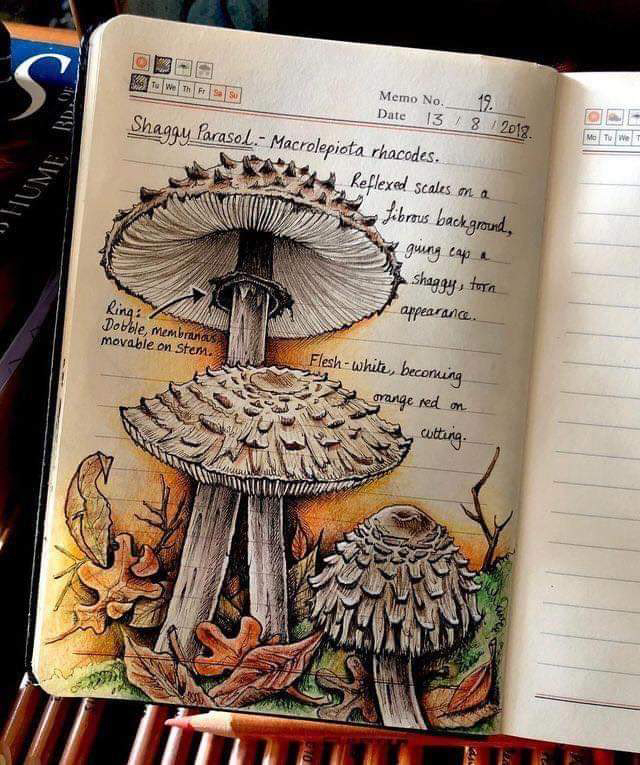 Tu We Th Fr Sa Su
Memo No. 19.
Date 13 / 8 / 2018.
Shaggy Parasol.- Macrolepiota rhacodes.
Reflexed scales on a
fibrous background,
giving cap a
shaggy, torn
appearance.
Ring:
Dobble, membranous
movable on stem.
Flesh-white, becoming
orange red on
cutting.
Mo Tu We T
S
HUME